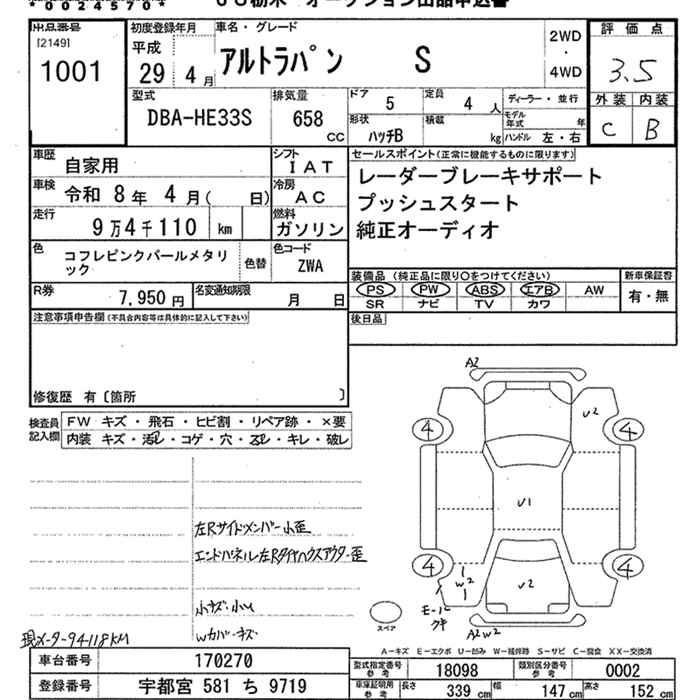 *0024570*
オークション出品申込書
出品番号
[2149]
1001
初度登録年月
平成
29 4 月
車名・グレード
アルトラパン S
2WD
4WD
評価点
3.5
外装 内装
C B
型式
DBA-HE33S
排気量
658 CC
ドア 5
定員 4 人
ディーラー・並行
モデル年式 年
形状 ハッチB
積載 kg
ハンドル 左・右
車歴 自家用
シフト IAT
車検 令和 8 年 4 月( 日)
冷房 AC
走行 9万4千110 km
燃料 ガソリン
色 コフレピンクパールメタリック
色替
色コード ZWA
R券 7,950 円
名変通知期限 月 日
セールスポイント(正常に機能するものに限ります)
レーダーブレーキサポート
プッシュスタート
純正オーディオ
装備品 (純正品に限り○をつけてください)
PS PW ABS エアB AW
SR ナビ TV カワ
新車保証書
有・無
後日品
注意事項申告欄(不具合内容等は具体的に記入して下さい)
修復歴 有〔箇所 〕
検査員記入欄
FW キズ・飛石・ヒビ割・リペア跡・×要
内装 キズ・汚レ・コゲ・穴・スレ・キレ・破レ
左Rサイドメンバー小歪
エンドパネル左Rタイヤハウスアウター歪
小キズ・小U
Wカバーキズ
現メーター94118KM
A2
U2
4 4
U1
4 4
W2
U2
A2W2
スペア
A-キズ E-エクボ U-凹み W-補修跡 S-サビ C-腐食 XX-交換済
車台番号 170270
登録番号 宇都宮 581 ち 9719
型式指定番号 参考 18098
類別区分番号 参考 0002
車庫証明用 参考
長さ 339 cm
幅 147 cm
高さ 152 cm